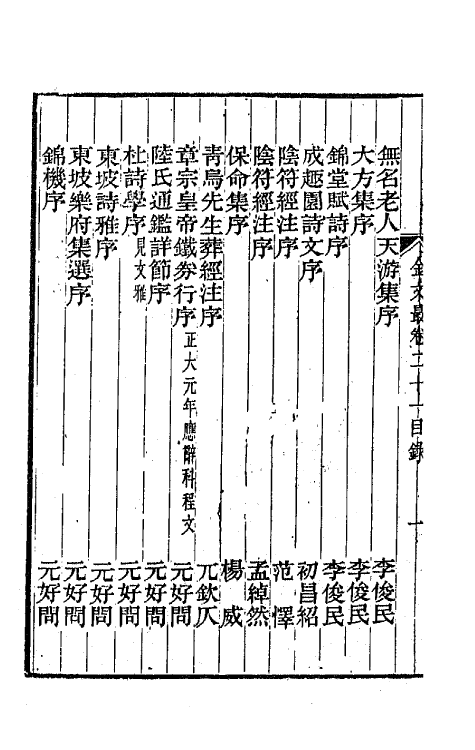 金文最卷二十一目錄 一
無名老人天游集序 李俊民
大方集序 李俊民
錦堂賦詩序 李俊民
成趣園詩文序 初昌紹
陰符經注序 范懌
陰符經注序 孟綽然
保命集序 楊威
青烏先生葬經注序 兀欽仄
章宗皇帝鐵券行序 正大元年應辭科程文 元好問
陸氏通鑑詳節序 元好問
杜詩學序 見文雅 元好問
東坡詩雅序 元好問
東坡樂府集選序 元好問
錦機序 元好問